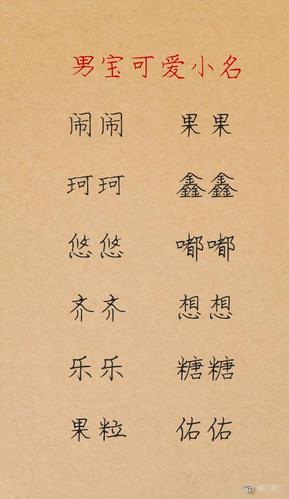 男宝可爱小名
闹闹 果果
珂珂 鑫鑫
悠悠 嘟嘟
齐齐 想想
乐乐 糖糖
果粒 佑佑